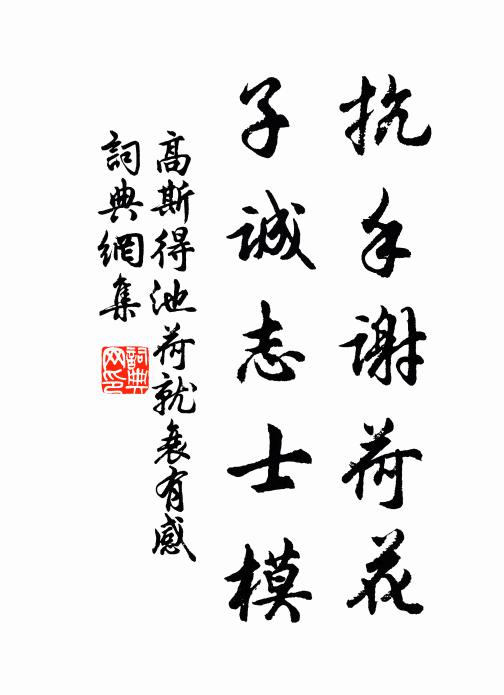 抗手謝荷花
子誠志士模
高斯得池荷就衰有感
詞典網集
詞典網印